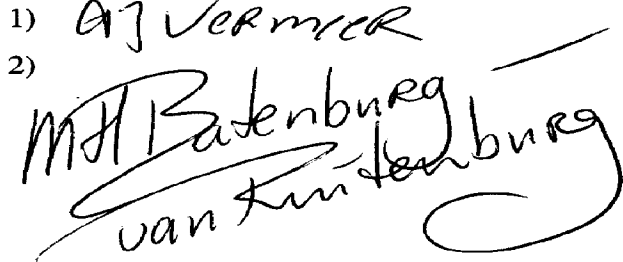 1) AJ Vermeer
2)
MH Batenburg —
van Ruitenburg